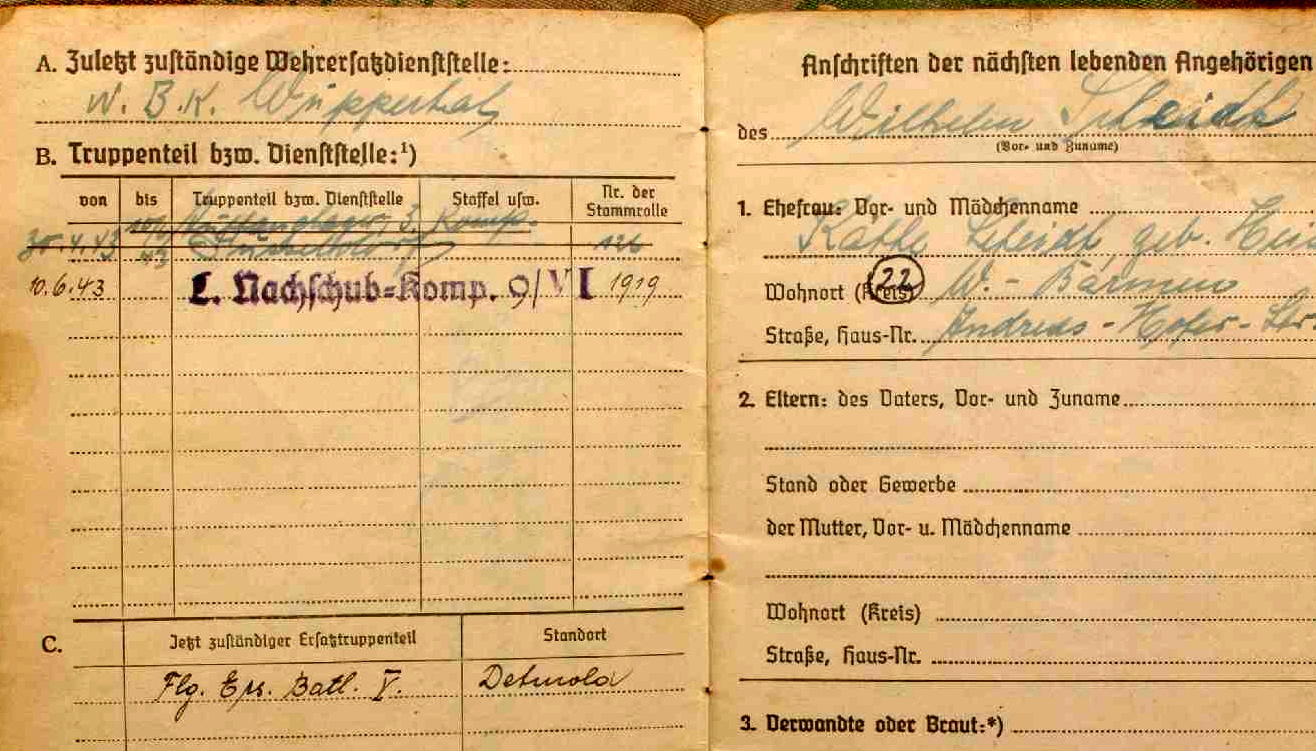 A. Zuletzt zuständige Wehrersatzdienststelle:
W. B. K. Wuppertal
B. Truppenteil bzw. Dienststelle:¹)
von bis Truppenteil bzw. Dienststelle Staffel usw. Nr. der Stammrolle
3. Komp.
30.4.43 43 Düsseldorf 126
10.6.43 L. Nachschub-Komp. 9/VI 1919
C. Jetzt zuständiger Ersatztruppenteil Standort
Flg. Ers. Batl. V. Detmold
Anschriften der nächsten lebenden Angehörigen
des Wilhelm Scheidt
(Vor- und Zuname)
1. Ehefrau: Vor- und Mädchenname
Käthe Scheidt, geb.
Wohnort (Kreis) 22 W. - Barmen
Straße, Haus-Nr. Andreas-Hofer-Str.
2. Eltern: des Vaters, Vor- und Zuname
Stand oder Gewerbe
der Mutter, Vor- u. Mädchenname
Wohnort (Kreis)
Straße, Haus-Nr.
3. Verwandte oder Braut:*)